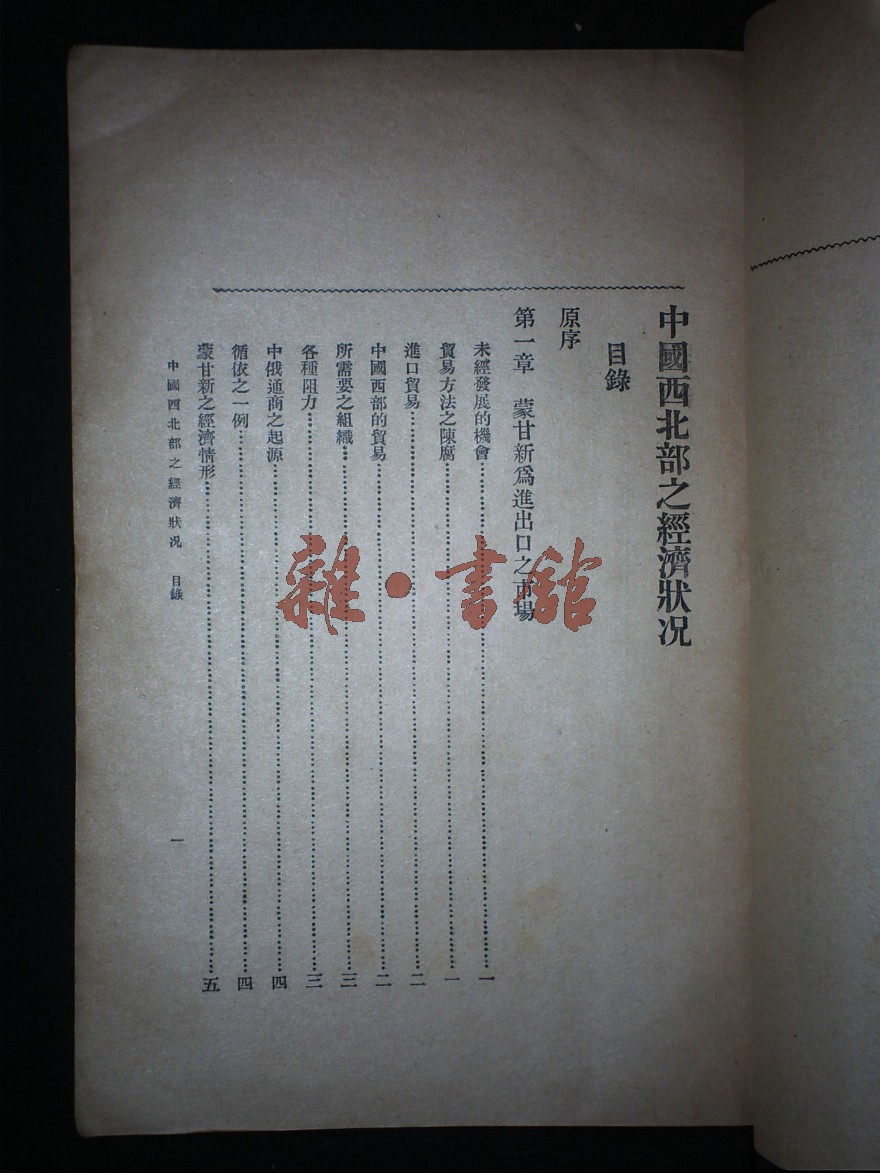 中國西北部之經濟狀况
目錄
原序
第一章　蒙甘新爲進出口之市場
未經發展的機會……一
貿易方法之陳腐……一
進口貿易……二
中國西部的貿易……二
所需要之組織……三
各種阻力……三
中俄通商之起源……四
循依之一例……四
蒙甘新之經濟情形……五
中國西北部之經濟狀况　目錄
一
雜·書館